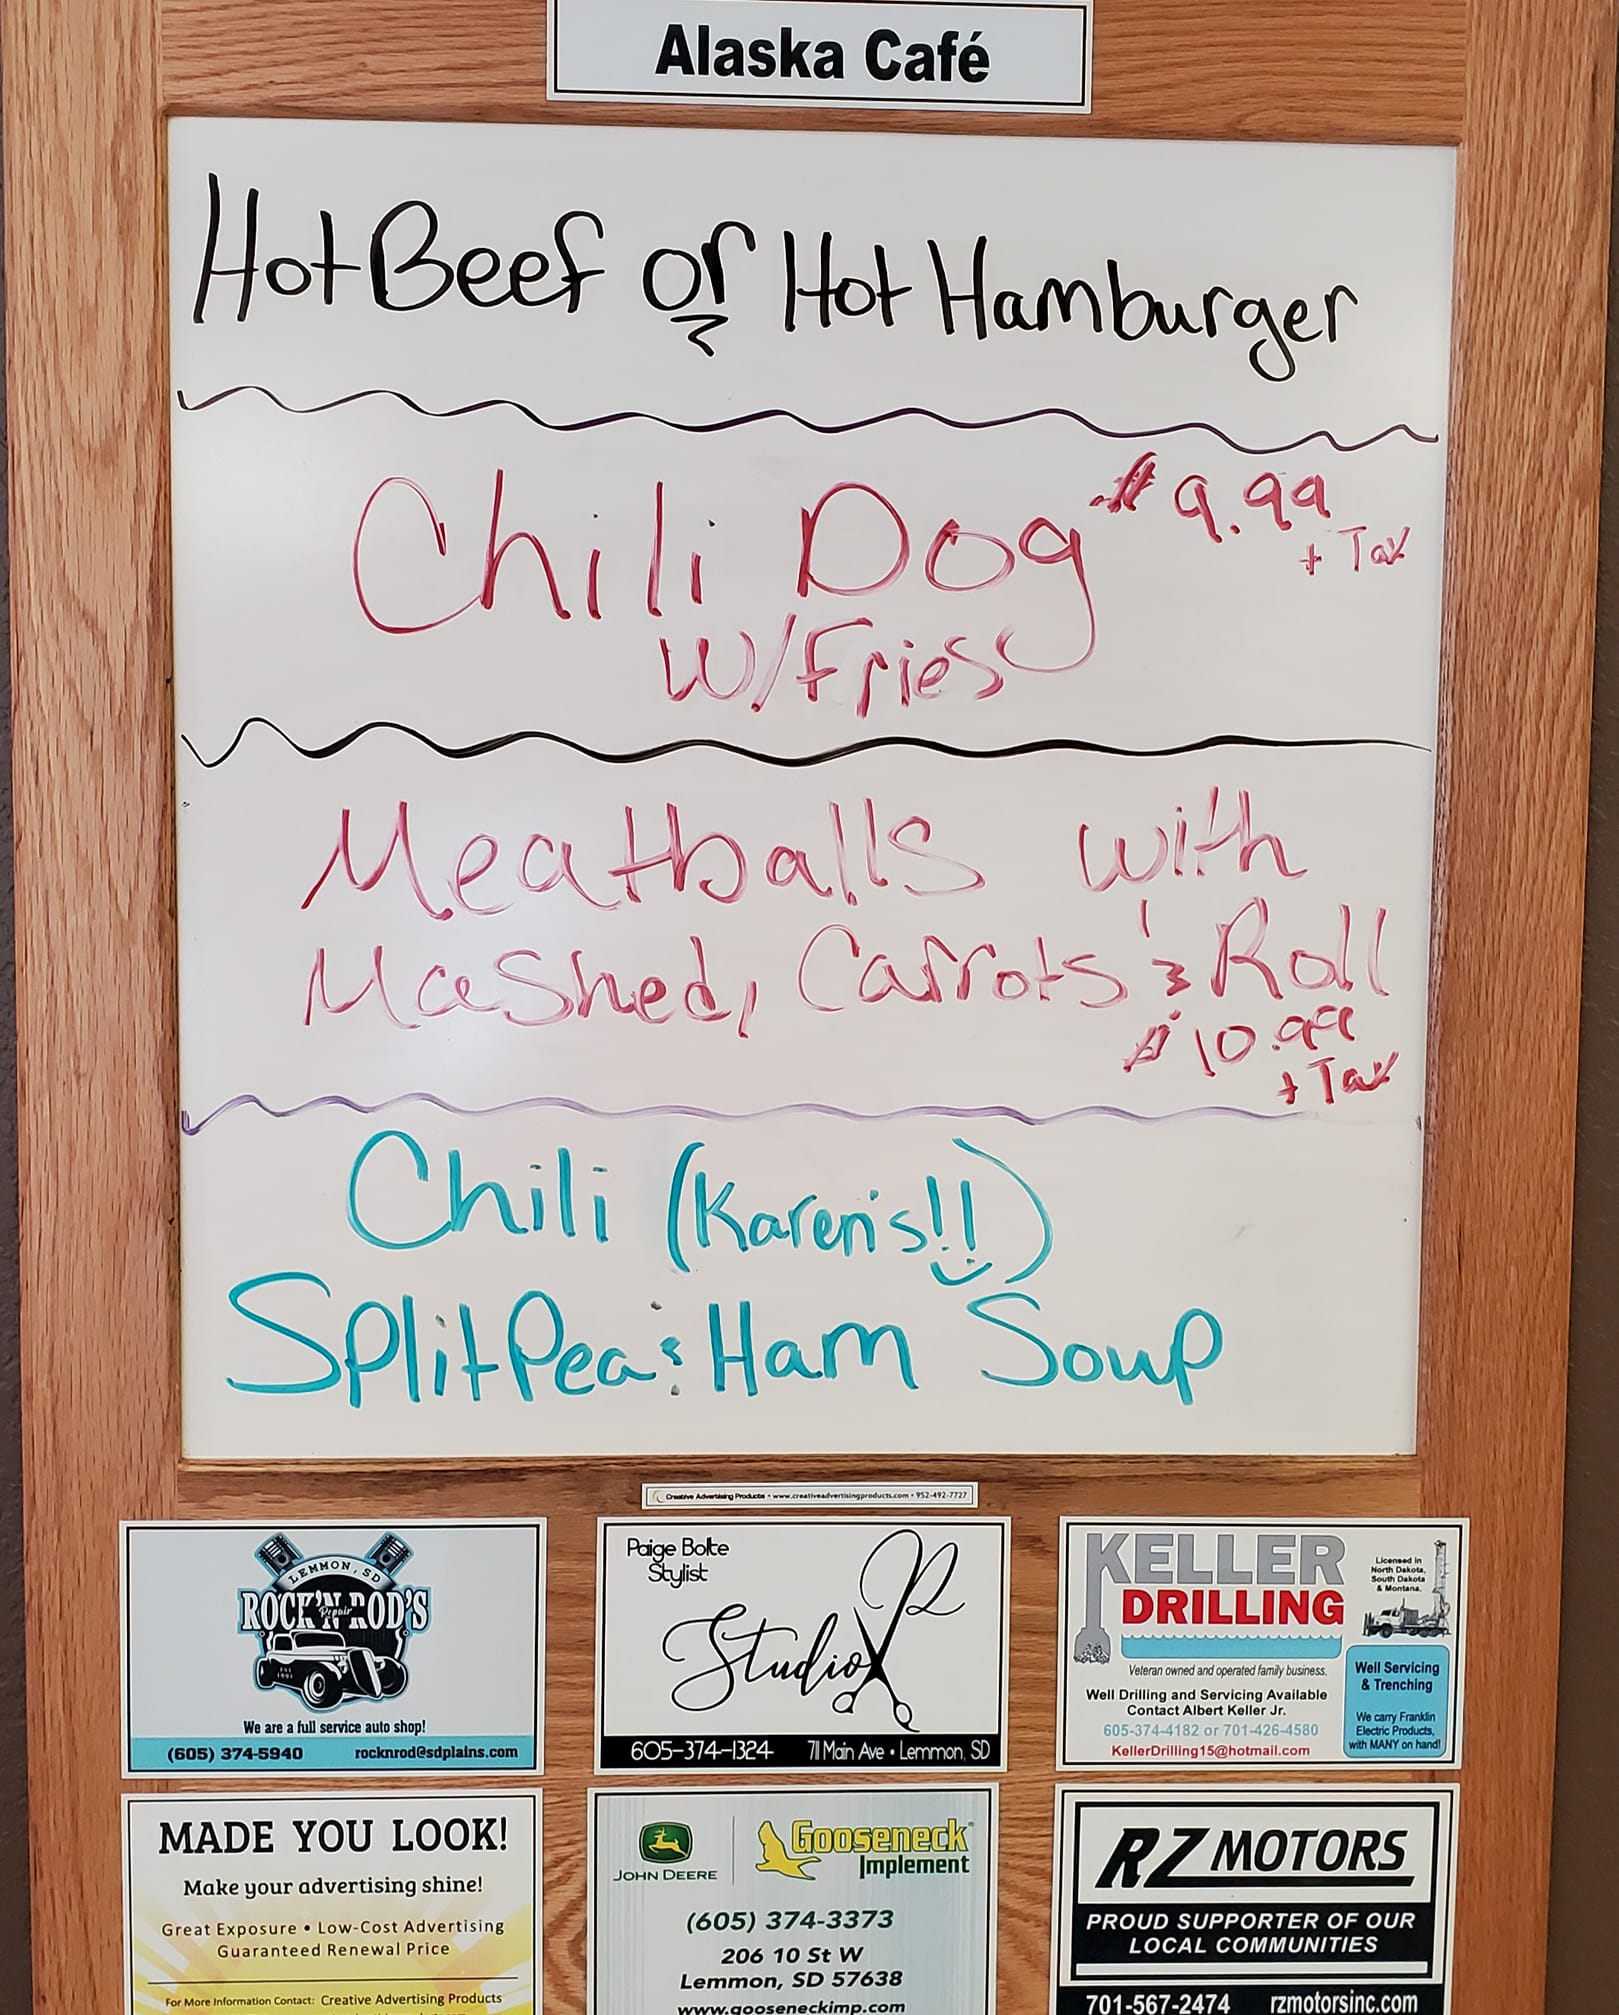 Alaska Café
Hot Beef or Hot Hamburger
Chili Dog $9.99
+ Tax
W/Fries
Meatballs with
Mashed, Carrots & Roll
$10.99
+ Tax
Chili (Karen's!!)
Split Pea & Ham Soup
Creative Advertising Products • www.creativeadvertisingproducts.com • 952-492-7727
LEMMON, SD
ROCK'N ROD'S
Repair
EST 1991
We are a full service auto shop!
(605) 374-5940 rocknrod@sdplains.com
Paige Bolte
Stylist
P
Studio
605-374-1324 711 Main Ave • Lemmon, SD
KELLER
DRILLING
Licensed in
North Dakota,
South Dakota
& Montana.
Veteran owned and operated family business.
Well Drilling and Servicing Available
Contact Albert Keller Jr.
605-374-4182 or 701-426-4580
KellerDrilling15@hotmail.com
Well Servicing
& Trenching
We carry Franklin
Electric Products,
with MANY on hand!
MADE YOU LOOK!
Make your advertising shine!
Great Exposure • Low-Cost Advertising
Guaranteed Renewal Price
For More Information Contact: Creative Advertising Products
JOHN DEERE
Gooseneck
Implement
(605) 374-3373
206 10 St W
Lemmon, SD 57638
www.gooseneckimp.com
RZ MOTORS
PROUD SUPPORTER OF OUR
LOCAL COMMUNITIES
701-567-2474 rzmotorsinc.com